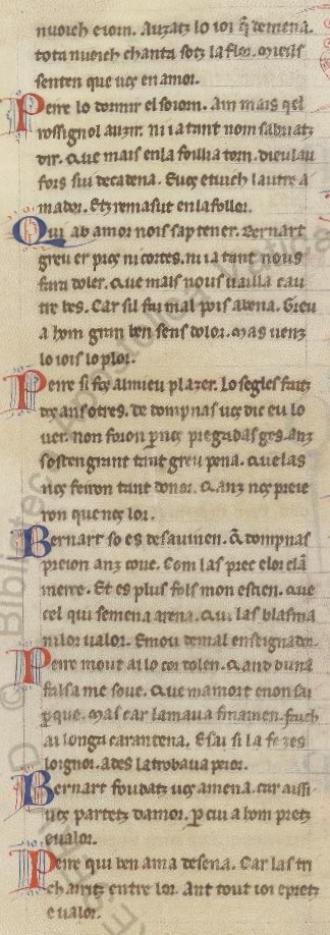 nuoich e iorn. Auzatz lo ioi qe demena.
tota nuoich chanta sotz la flor. Miels
senten que uos en amor.
Peire lo dormir el soiorn. Am mais qel
rossignol auzir. ni ia tant nom sabriatz
dir. Que mais en la foillia torn. dieu lau
fors sui de cadena. E uos etuich lautre a
mador. Etz remasut en la follor.
Qui ab amor nois sap tener. Bernart
greu er pros ni cortes. ni ia tant nous
fara doler. Que mais nous uailla cau
tre bes. Car sil fai mal pois abena. Greu
a hom gran ben sens dolor. Mas uenz
lo iois lo plor.
Peire si fos al mieu plazer. Lo segles faitz
dos ans o tres. de dompnas uos dic eu lo
uer. non foron per nos pregadas ges. anz
sostengrant tant greu pena. Que las
nos feiron tant donor. Q anz nos preie
ron que nos lor.
Bernart so es desauinen. Q dompnas
preion anz coue. Com las prec e lor clā
merce. Et es plus fols mon escien. Que
cel qui semena arena. Qui las blasma
ni lor ualor. E mou de mal enseignador.
Peire mout ai lo cor dolen. Quand duna
falsa me soue. Que ma mort e non sai
per que. Mas car lamaua finamen. faich
ai longa carantena. E sai si la fezes
loignor. ades la trobaua peior.
Bernart foudatz uos amena. car aissi
uos partetz damor. per cui a hom pretz
e ualor.
Peire qui ben ama desena. Car las tri
chairitz entre lor. Ant tout ioi e pretz
e ualor.